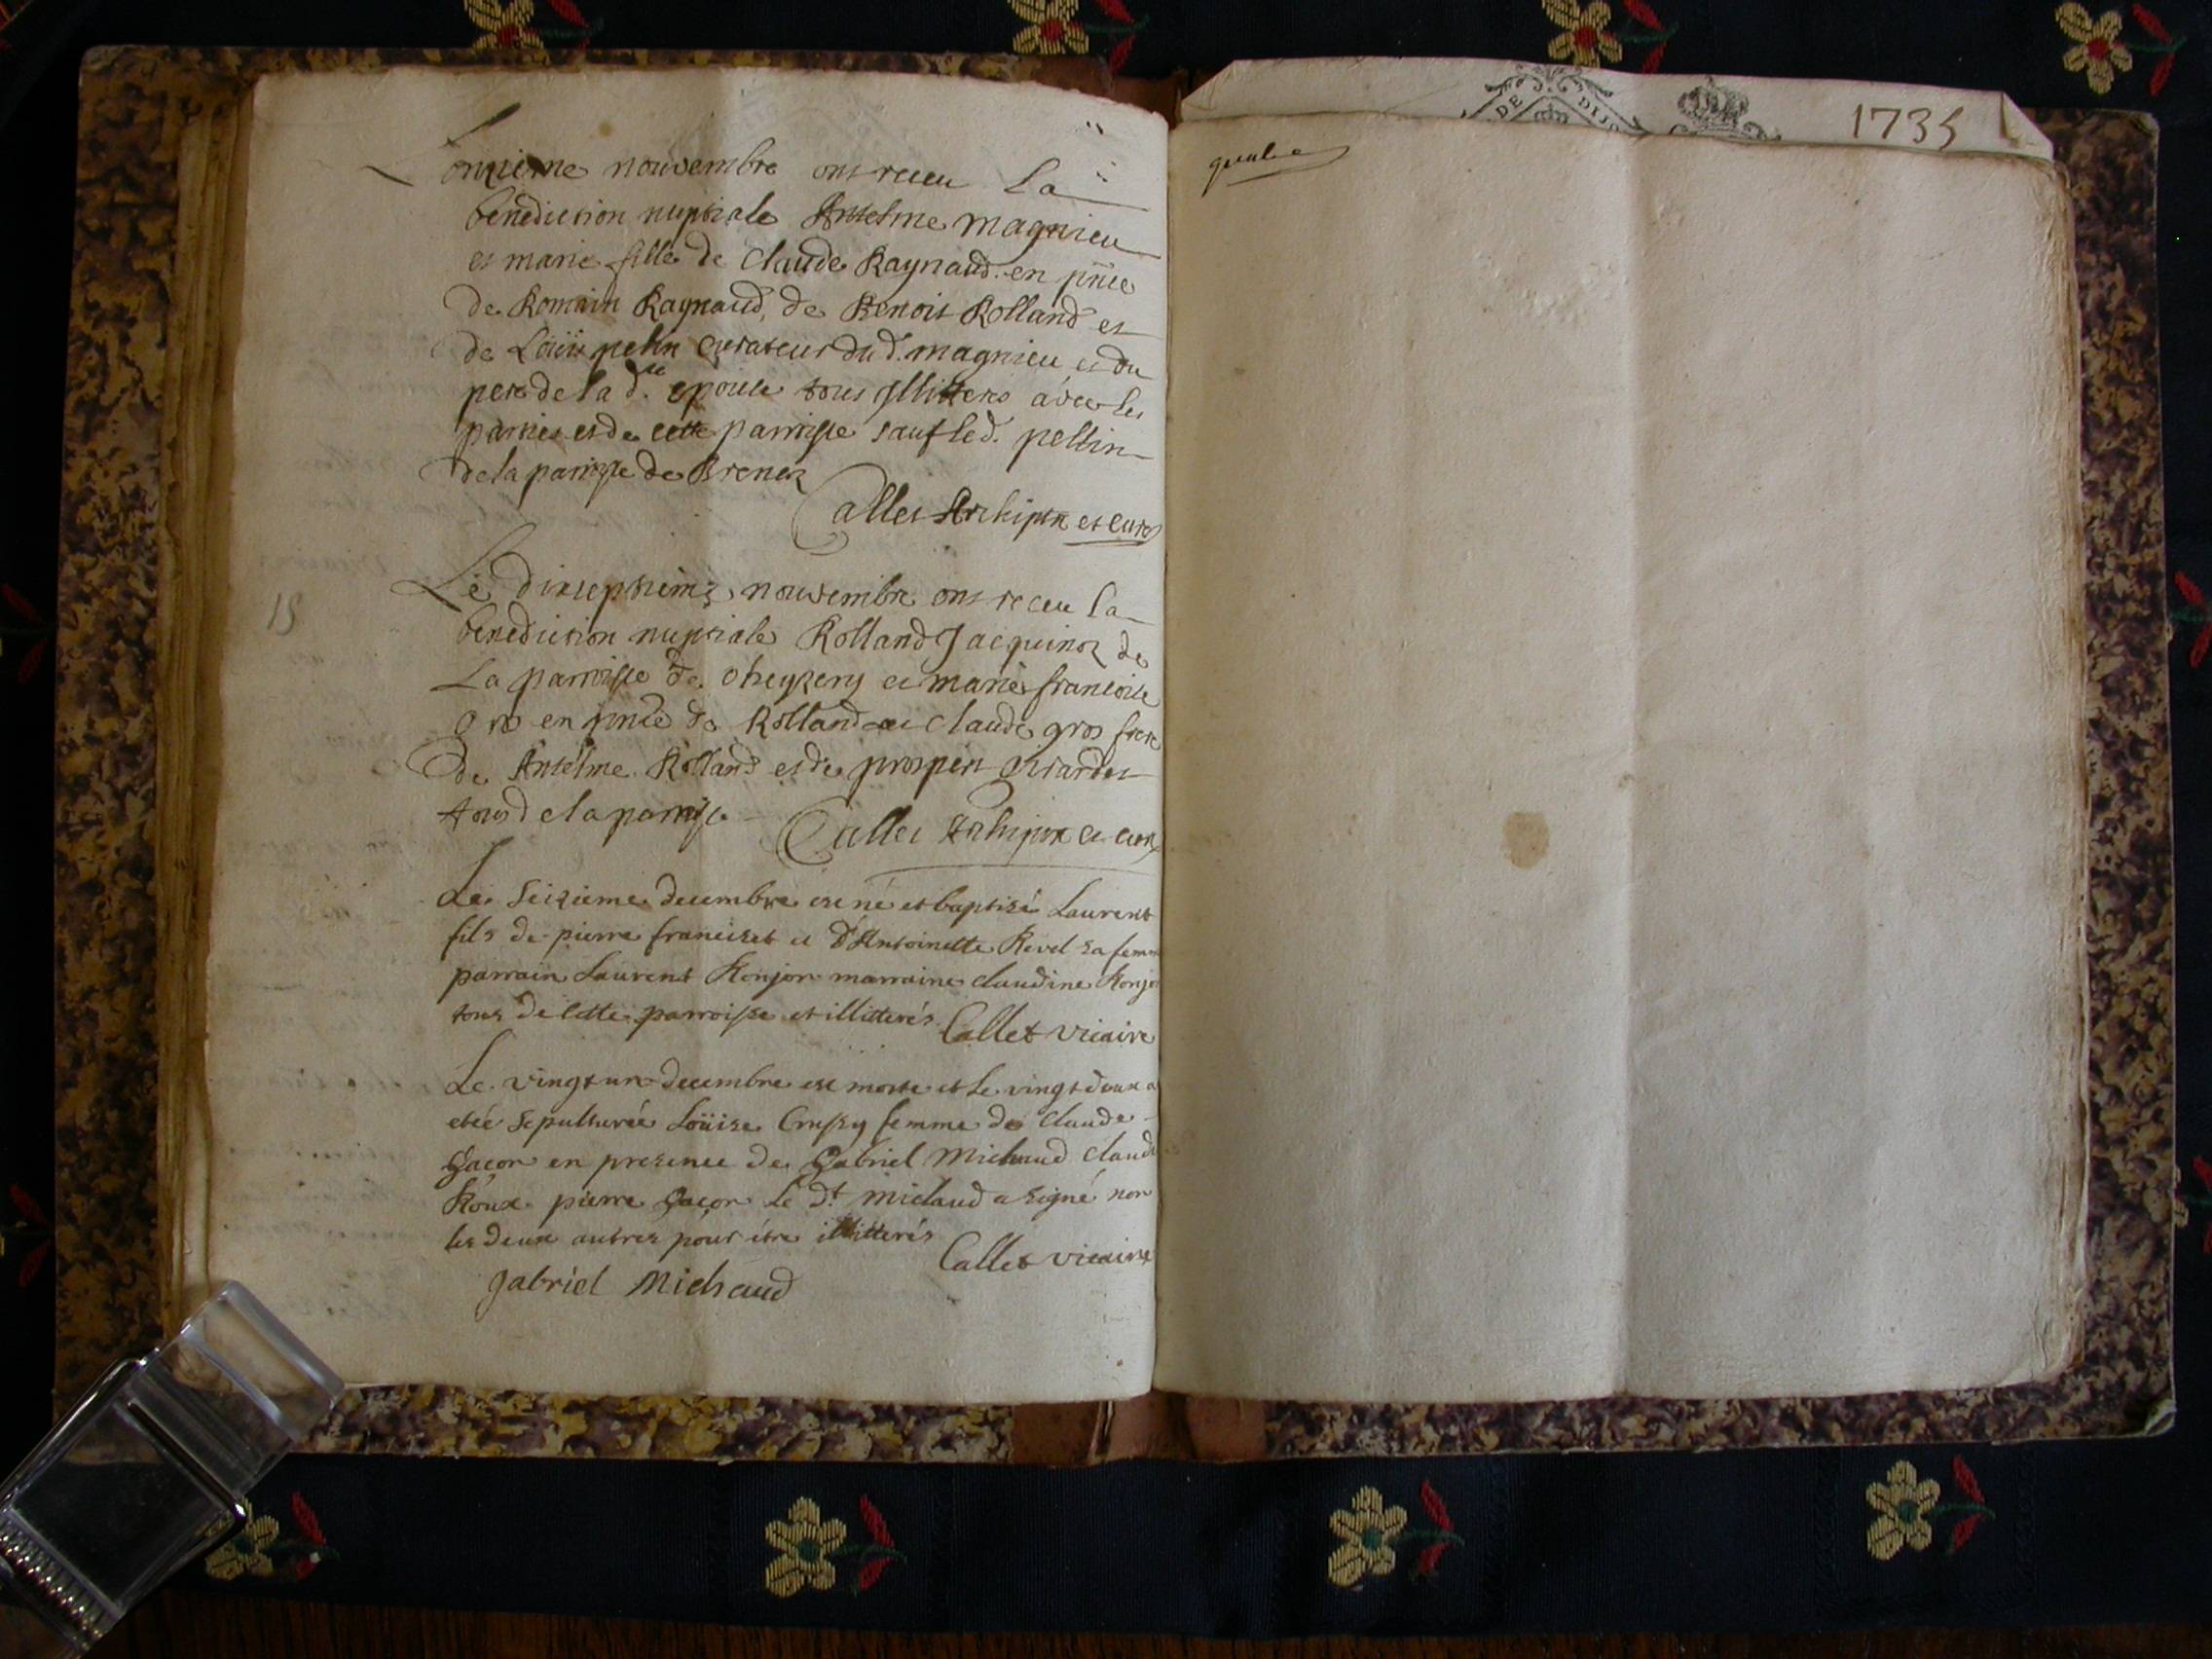 L'onzieme nouvembre ont receu La
benediction nuptiale Antelme magnieu
et marie fille de Claude Raynaud. en pnce
de Romain Raynaud, de Benoit Rolland et
de Loüis pelin curateur du d. magnieu et du
pere de la de. epouse tous illiteres avec les
parties et de cette parroisse sauf led. pellin
de la parroisse de Brenaz
Callet Archiptre et curé
Le dixseptieme nouvembre ont receu la
benediction nuptiale Rolland Jacquinoz de
La parroisse de cheyzery et marie francoise
gros en pnce de Rolland et Claude gros frere
de Antelme Rolland et de prosper
tous de la parroisse
Callet Archiptre et curé
15
Le Seizieme decembre est né et baptisé Laurent
fils de pierre franciset et d'Antoinette Revel sa femme
parrain Laurent Bonjon marraine claudine Bonjon
tous de cette parroisse et illitterés
Callet vicaire
Le vingt un decembre est morte et le vingt deux a
eteé sepulturée Loüise Crussy femme de Claude
gacon en presence de Gabriel Michaud Claude
Roux pierre gacon le dt michaud a signé non
les deux autres pour être illitterés
Callet vicaire
gabriel Michaud
quatre
DE DIJO
1735